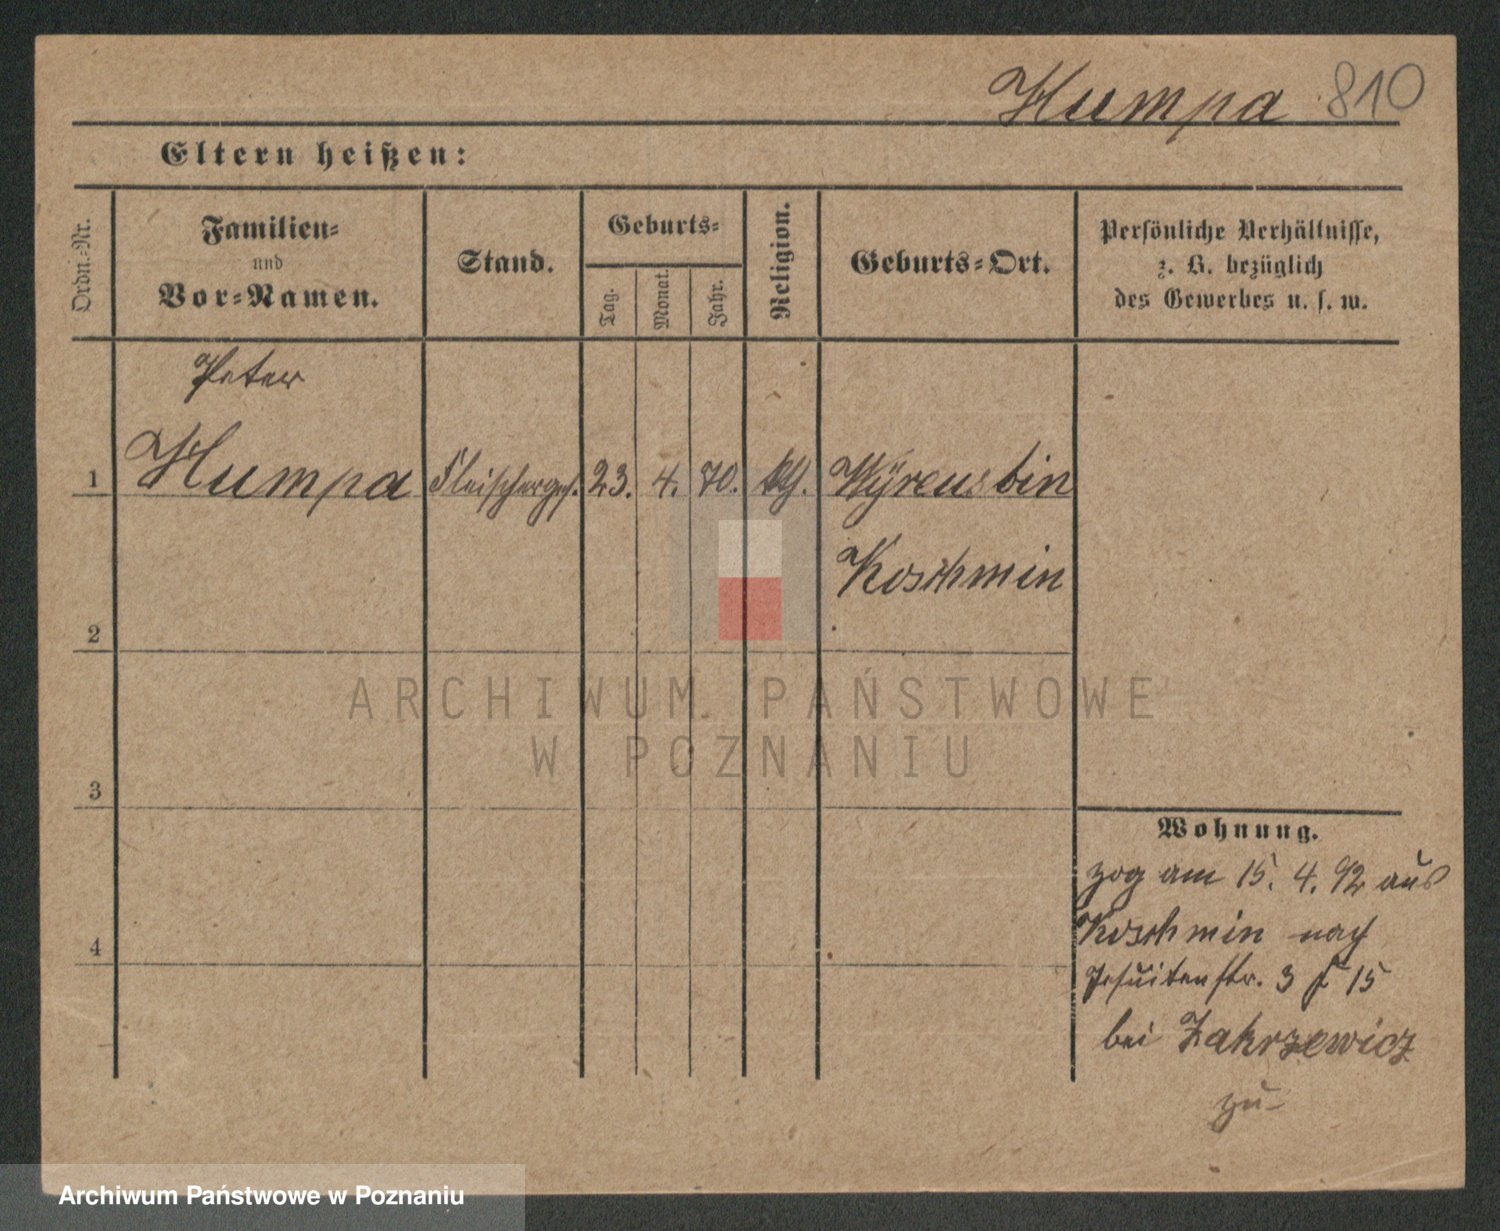 Humpa 810
Eltern heißen:
Ordn.-Nr.
Familien-
und
Vor-Namen.
Stand.
Geburts-
Tag.
Monat.
Jahr.
Religion.
Geburts-Ort.
Persönliche Verhältnisse,
z. B. bezüglich
des Gewerbes u. s. w.
Peter
1 Humpa Fleischerges. 23. 4. 70. kth.
Koschmin
2
ARCHIWUM PAŃSTWOWE
W POZNANIU
3
Wohnung.
zog am 15. 4. 92 aus
Koschmin nach
4
Jesuitenstr. 3 15
bei Zakrzewicz
zu
Archiwum Państwowe w Poznaniu